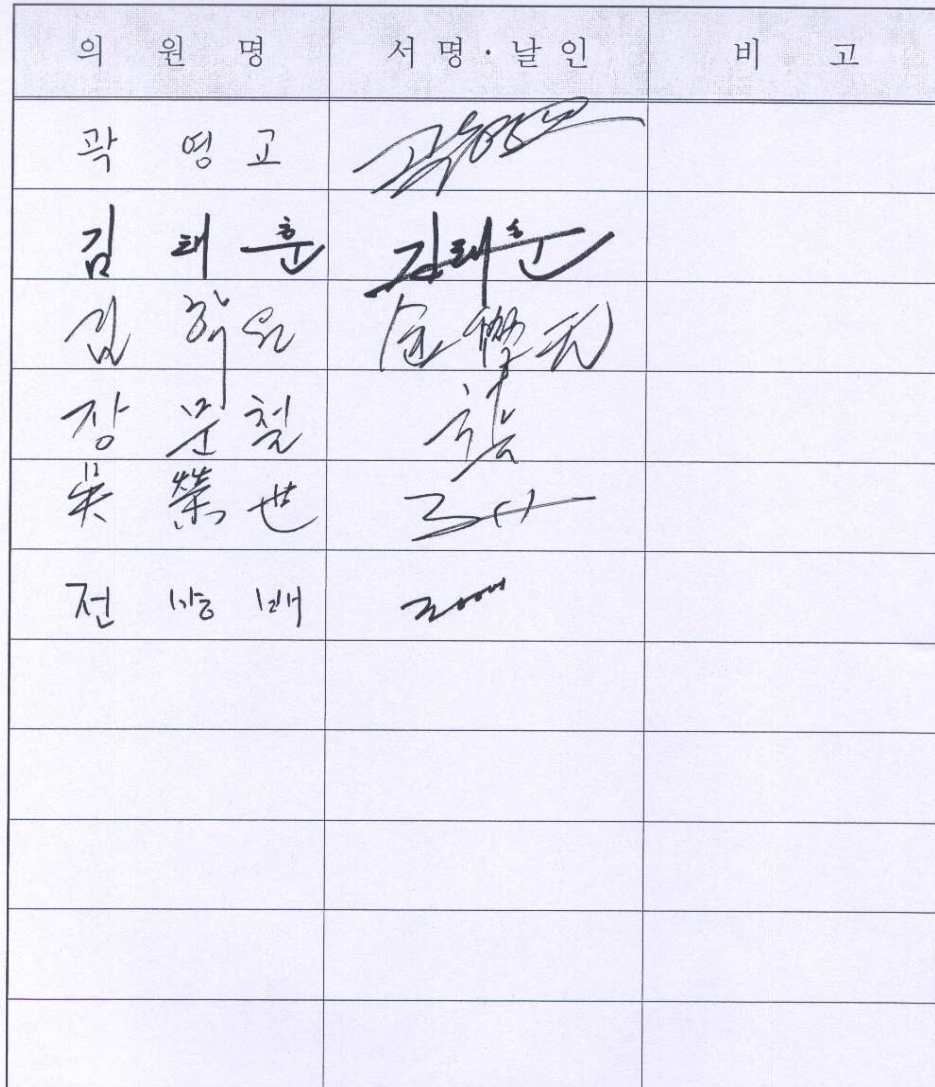 의 원 명 서명·날인 비 고
곽 영 교 곽영교
김 태 훈 김태훈
김 학 원 金學元
장 문 철
吳 榮 世
전 상 배